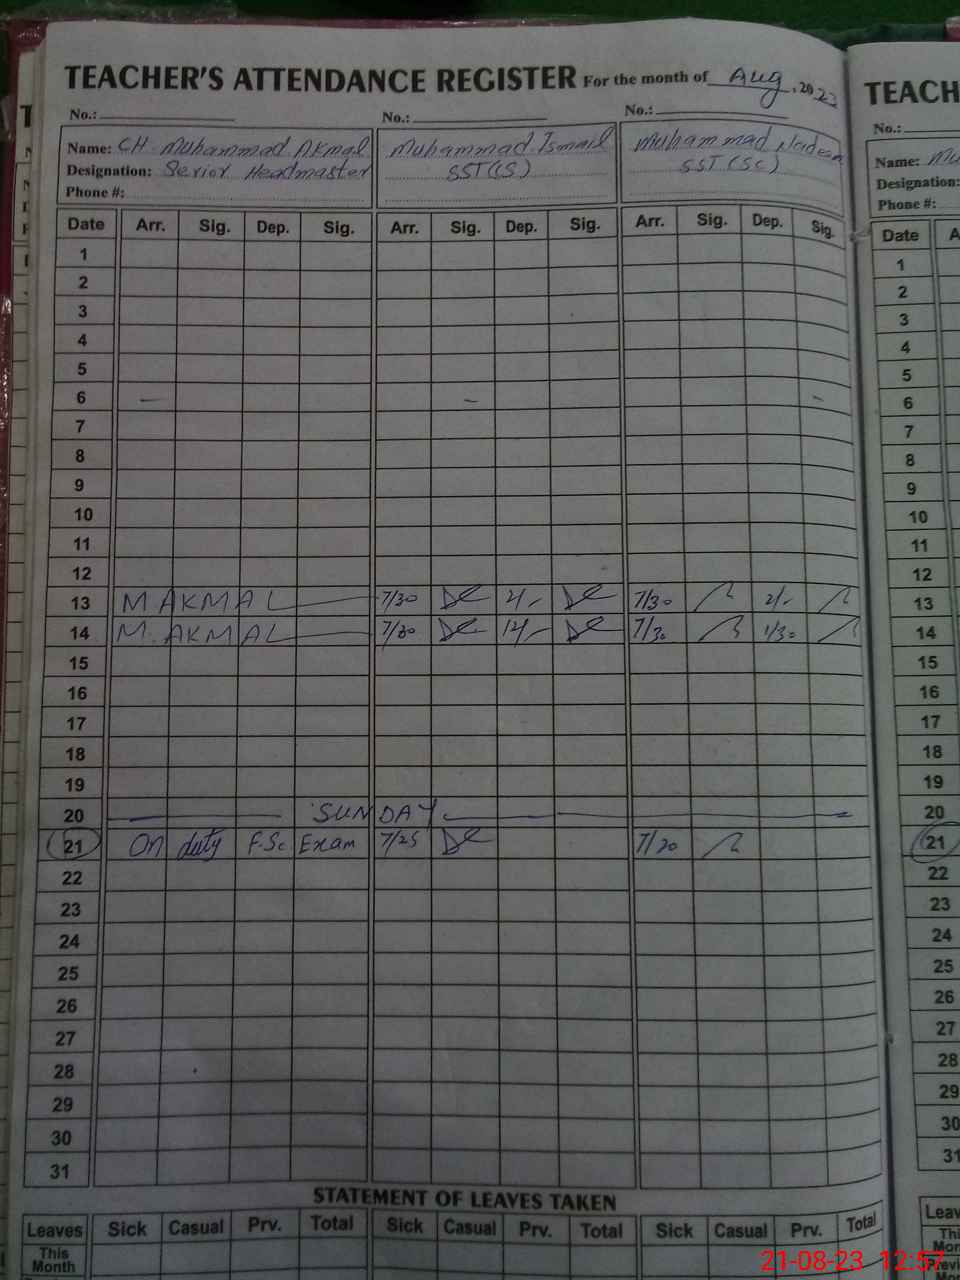 TEACHER'S ATTENDANCE REGISTER For the month of Aug, 2023
No.: No.: No.:
Name: CH. Muhammad Akmal Muhammad Ismail Muhammad Nadeem
Designation: Senior Headmaster SST(CS) SST(Sc)
Phone #:
Date Arr. Sig. Dep. Sig. Arr. Sig. Dep. Sig. Arr. Sig. Dep. Sig.
1
2
3
4
5
6 - - -
7
8
9
10
11
12
13 M AKMAL 7/30 2/- 7/30 2/-
14 M. AKMAL 7/30 12/- 7/30 1/30
15
16
17
18
19
20 SUNDAY
21 On duty F.Sc Exam 7/25 7/20
22
23
24
25
26
27
28
29
30
31
STATEMENT OF LEAVES TAKEN
Leaves Sick Casual Prv. Total Sick Casual Prv. Total Sick Casual Prv. Total
This
Month
TEACH
No.:
Name: Mu
Designation:
Phone #:
Date A
1
2
3
4
5
6
7
8
9
10
11
12
13
14
15
16
17
18
19
20
21
22
23
24
25
26
27
28
29
30
31
Leav
Thi
Mon
Previ
21-08-23 12:57